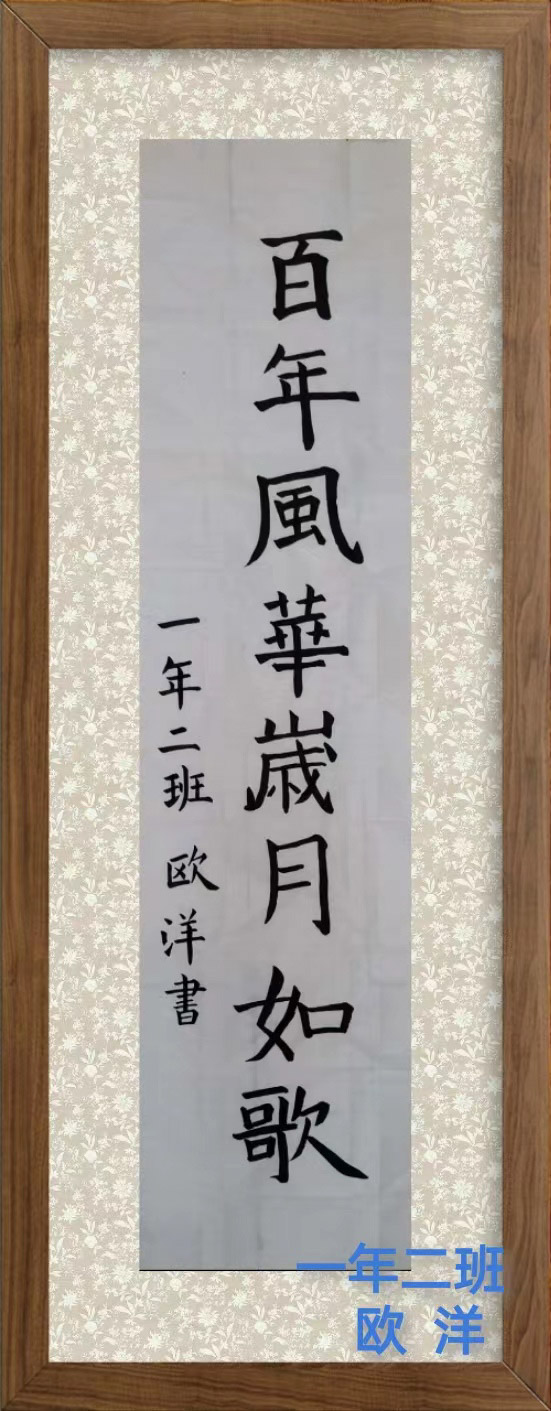 百年風華歲月如歌
一年二班 欧洋書
一年二班
欧 洋